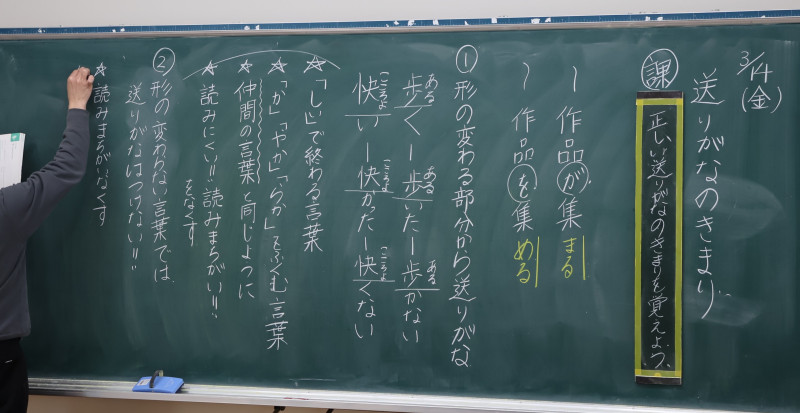 3/14(金)
送りがなのきまり
課
正しい送りがなのきまりを覚えよう。
〜作品が集まる
〜作品を集める
① 形の変わる部分から送りがな
歩く ー 歩いた ー 歩かない
ある ある ある
快い ー 快かった ー 快くない
こころよ こころよ こころよ
☆「し」で終わる言葉
☆「か」「やか」「らか」をふくむ言葉
☆ 仲間の言葉と同じように
☆ 読みにくい!!読みまちがい!!
をなくす
② 形の変わらない言葉では
送りがなはつけない!!
☆ 読みまちがいなくす